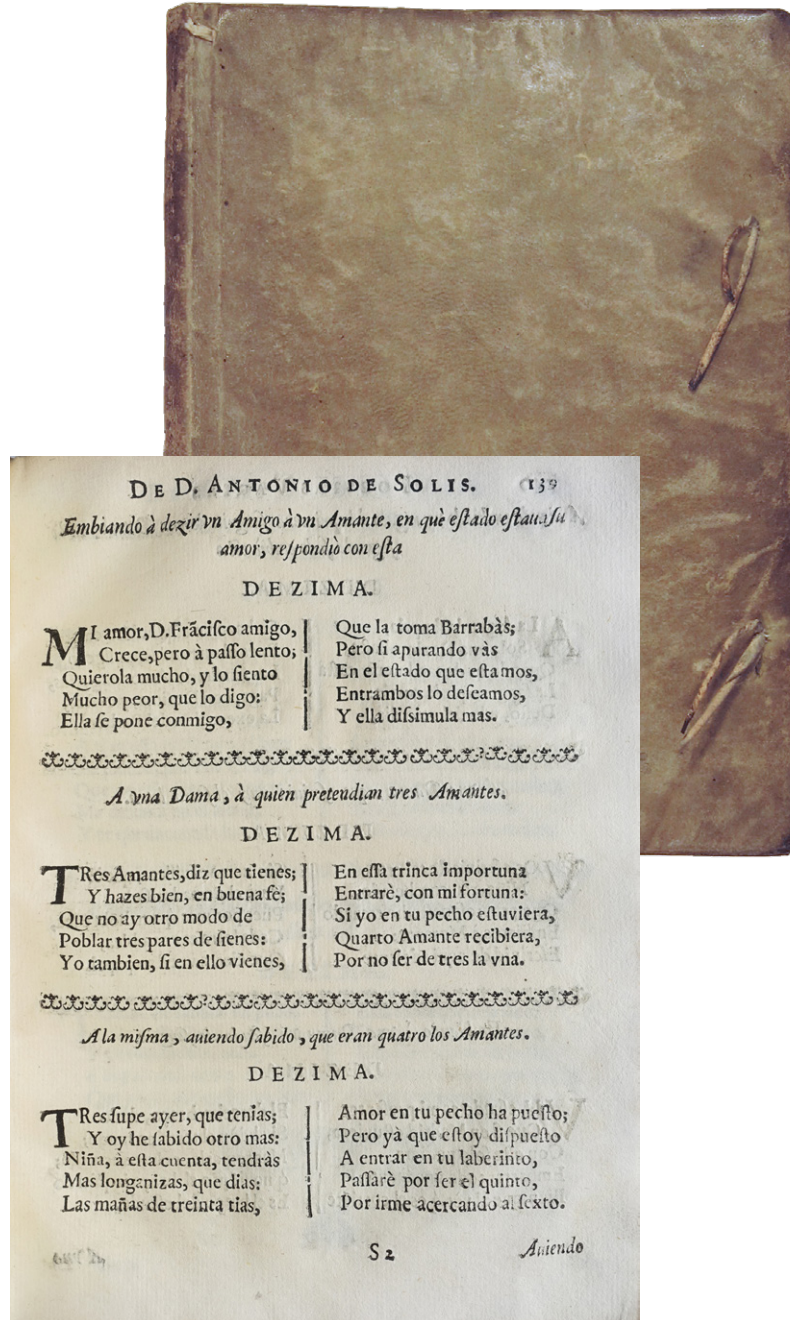 DE D. ANTONIO DE SOLIS. 139
Embiando à dezir vn Amigo à vn Amante, en què eſtado eſtaua ſu
amor, reſpondiò con eſta
DEZIMA.
MI amor, D. Frãciſco amigo,
Crece, pero à paſſo lento;
Quierola mucho, y lo ſiento
Mucho peor, que lo digo:
Ella ſe pone conmigo,
Que la toma Barrabàs;
Pero ſi apurando vàs
En el eſtado que eſtamos,
Entrambos lo deſeamos,
Y ella diſsimula mas.
A vna Dama, à quien preteudian tres Amantes.
DEZIMA.
TRes Amantes, diz que tienes;
Y hazes bien, en buena fe;
Que no ay otro modo de
Poblar tres pares de ſienes:
Yo tambien, ſi en ello vienes,
En eſſa trinca importuna
Entrarè, con mi fortuna:
Si yo en tu pecho eſtuviera,
Quarto Amante recibiera,
Por no ſer de tres la vna.
A la miſma, auiendo ſabido, que eran quatro los Amantes.
DEZIMA.
TRes ſupe ayer, que tenias;
Y oy he ſabido otro mas:
Niña, à eſta cuenta, tendràs
Mas longanizas, que dias:
Las mañas de treinta tias,
Amor en tu pecho ha pueſto;
Pero yà que eſtoy diſpueſto
A entrar en tu laberinto,
Paſſarè por ſer el quinto,
Por irme acercando al ſexto.
S 2
Auiendo